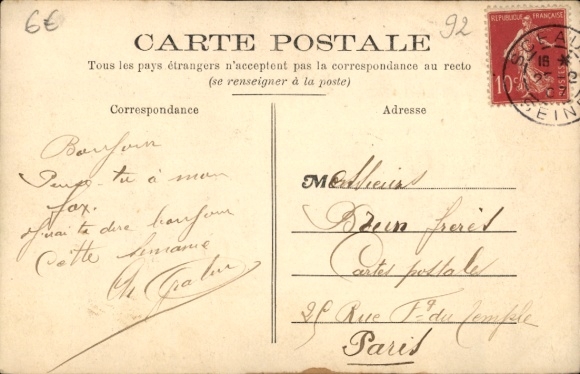 6€
92
CARTE POSTALE
Tous les pays étrangers n'acceptent pas la correspondance au recto
(se renseigner à la poste)
RÉPUBLIQUE FRANÇAISE
10c
POSTES
SCEAUX
SEINE
Correspondance
Bonjour
Pense-tu à mon
fox.
J'irai te dire bonjour
Cette semaine
Ch
Adresse
Messieurs
Brun frères
Cartes postales
25 Rue Fg du Temple
Paris